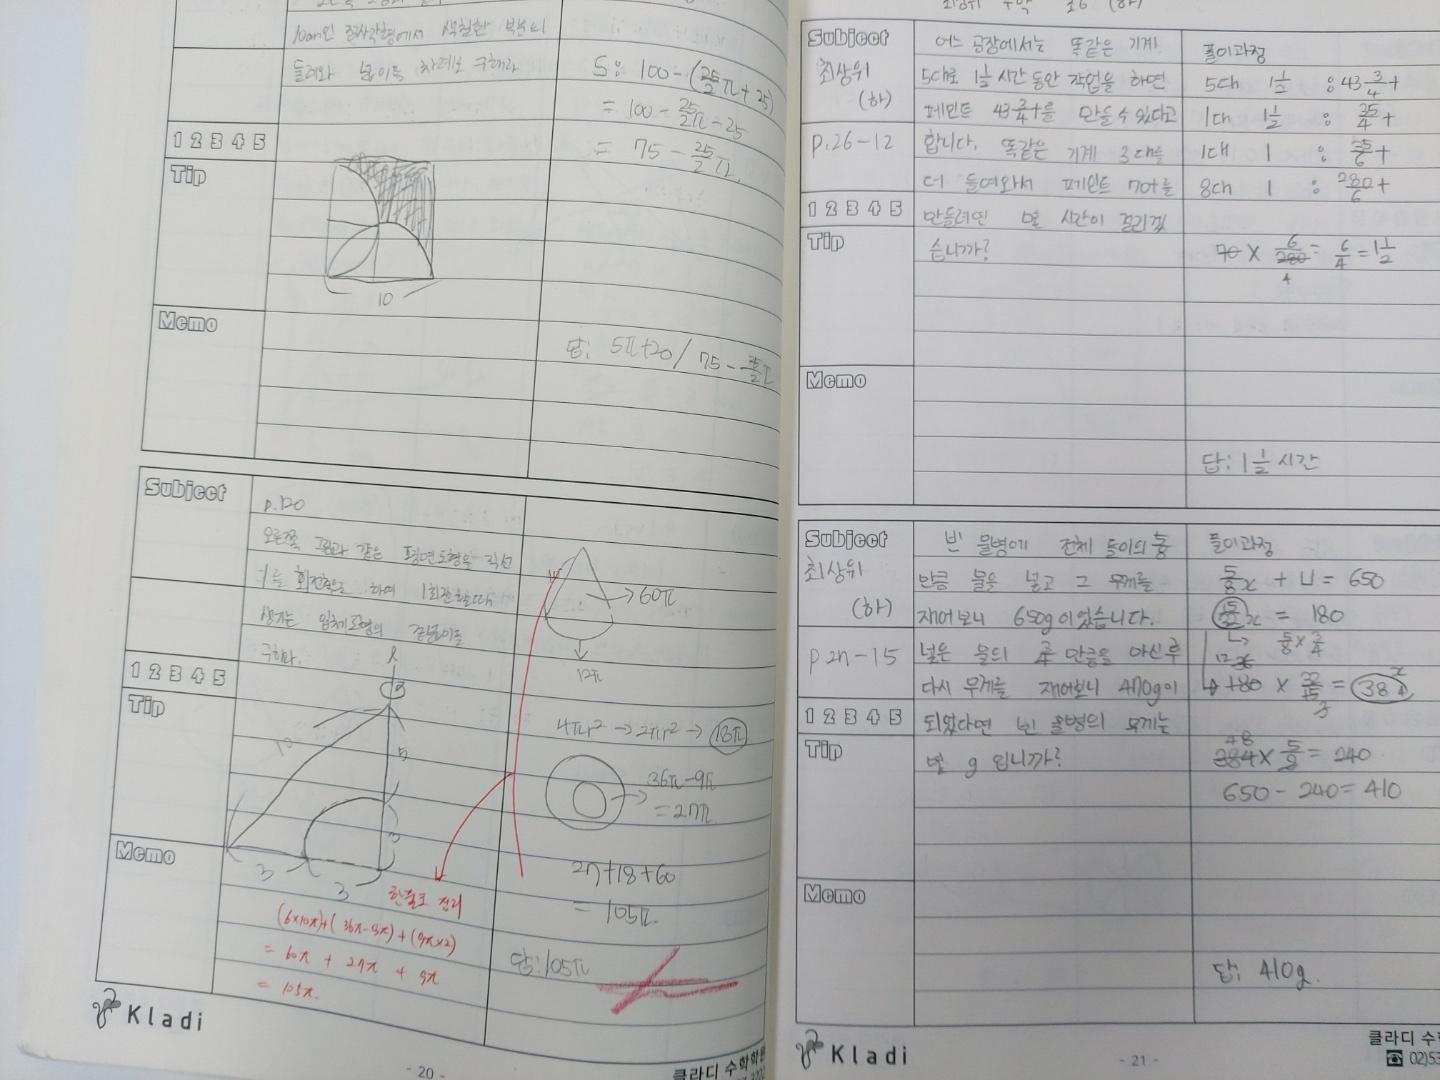 10cm인 정사각형에서 색칠한 부분의
둘레와 넓이를 차례로 구해라
S: 100-(25/2π+25)
= 100-25/2π-25
= 75-25/2π
1 2 3 4 5
Tip
10
Memo
답: 5π+20 / 75-25/2π
Subject
p.120
오른쪽 그림과 같은 평면도형을 직선
l를 회전축으로 하여 1회전할때
생기는 입체도형의 겉넓이를
구해라.
1 2 3 4 5
Tip
Memo
l
10
5
3
3
3
→60π
12π
4πr²→2πr²→18π
36π-9π
=27π
27+18+60
=105π.
답:105π
한줄로 정리
(6×10π)+(36π-9π)+(9π×2)
= 60π + 27π + 9π
= 105π.
Kladi
- 20 -
클라디 수학학원
최상위 수학 (하)
Subject
최상위
(하)
p.26-12
1 2 3 4 5
Tip
Memo
어느 공장에서는 똑같은 기계
5대로 1 1/2시간동안 작업을 하면
페인트 43 3/4t을 만들 수 있다고
합니다. 똑같은 기계 3대를
더 들여와서 페인트 70t를
만들려면 몇 시간이 걸리겠
습니까?
풀이과정
5대 1 1/2 : 43 3/4t
1대 1 1/2 : 35/4t
1대 1 : 35/6t
8대 1 : 280/6t
70 × 6/280 = 6/4 = 1 1/2
4
답: 1 1/2 시간
Subject
최상위
(하)
p.27-15
1 2 3 4 5
Tip
Memo
빈 물병에 전체 들이의 5/8
만큼 물을 넣고 그 무게를
재어보니 650g이었습니다.
넣은 물의 3/4만큼을 마신 후
다시 무게를 재어보니 470g이
되었다면 빈 물병의 무게는
몇 g입니까?
풀이과정
5/8x + U = 650
x = 180
→ 5/8 × 3/4
180 × 32/15 = 384
384 × 5/8 = 240
650 - 240 = 410
답: 410g.
Kladi
- 21 -
클라디 수
☎ 02)53